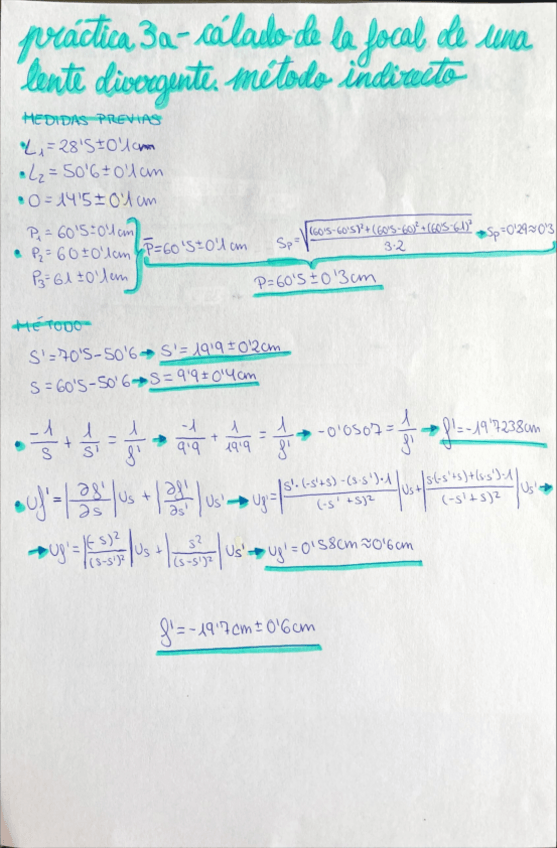 práctica 3a - cálado de la focal de una
lente divergente. método indirecto
MEDIDAS PREVIAS
• L₁ = 28'5 ± 0'1 cm
• L₂ = 50'6 ± 0'1 cm
• O = 14'5 ± 0'1 cm
P₁ = 60'5 ± 0'1 cm
• P₂ = 60 ± 0'1 cm
P₃ = 61 ± 0'1 cm
P̄ = 60'5 ± 0'1 cm
Sp = √((60'5-60'5)² + (60'5-60)² + (60'5-61)²)/(3·2) → Sp = 0'29 ≈ 0'3
P = 60'5 ± 0'3 cm
MÉTODO
S' = 70'5 - 50'6 → S' = 19'9 ± 0'2 cm
S = 60'5 - 50'6 → S = 9'9 ± 0'4 cm
• -1/S + 1/S' = 1/f' → -1/9'9 + 1/19'9 = 1/f' → -0'0507 = 1/f' → f' = -19'7238 cm
• uf' = |∂f'/∂s| us + |∂f'/∂s'| us' → uf' = |S'·(-s'+s) - (s·s')·1/(-s'+s)²| us + |s(-s'+s) + (s·s')·1/(-s'+s)²| us' →
→ uf' = |(-s)²/(s-s')²| us + |s²/(s-s')²| us' → uf' = 0'58 cm ≈ 0'6 cm
f' = -19'7 cm ± 0'6 cm